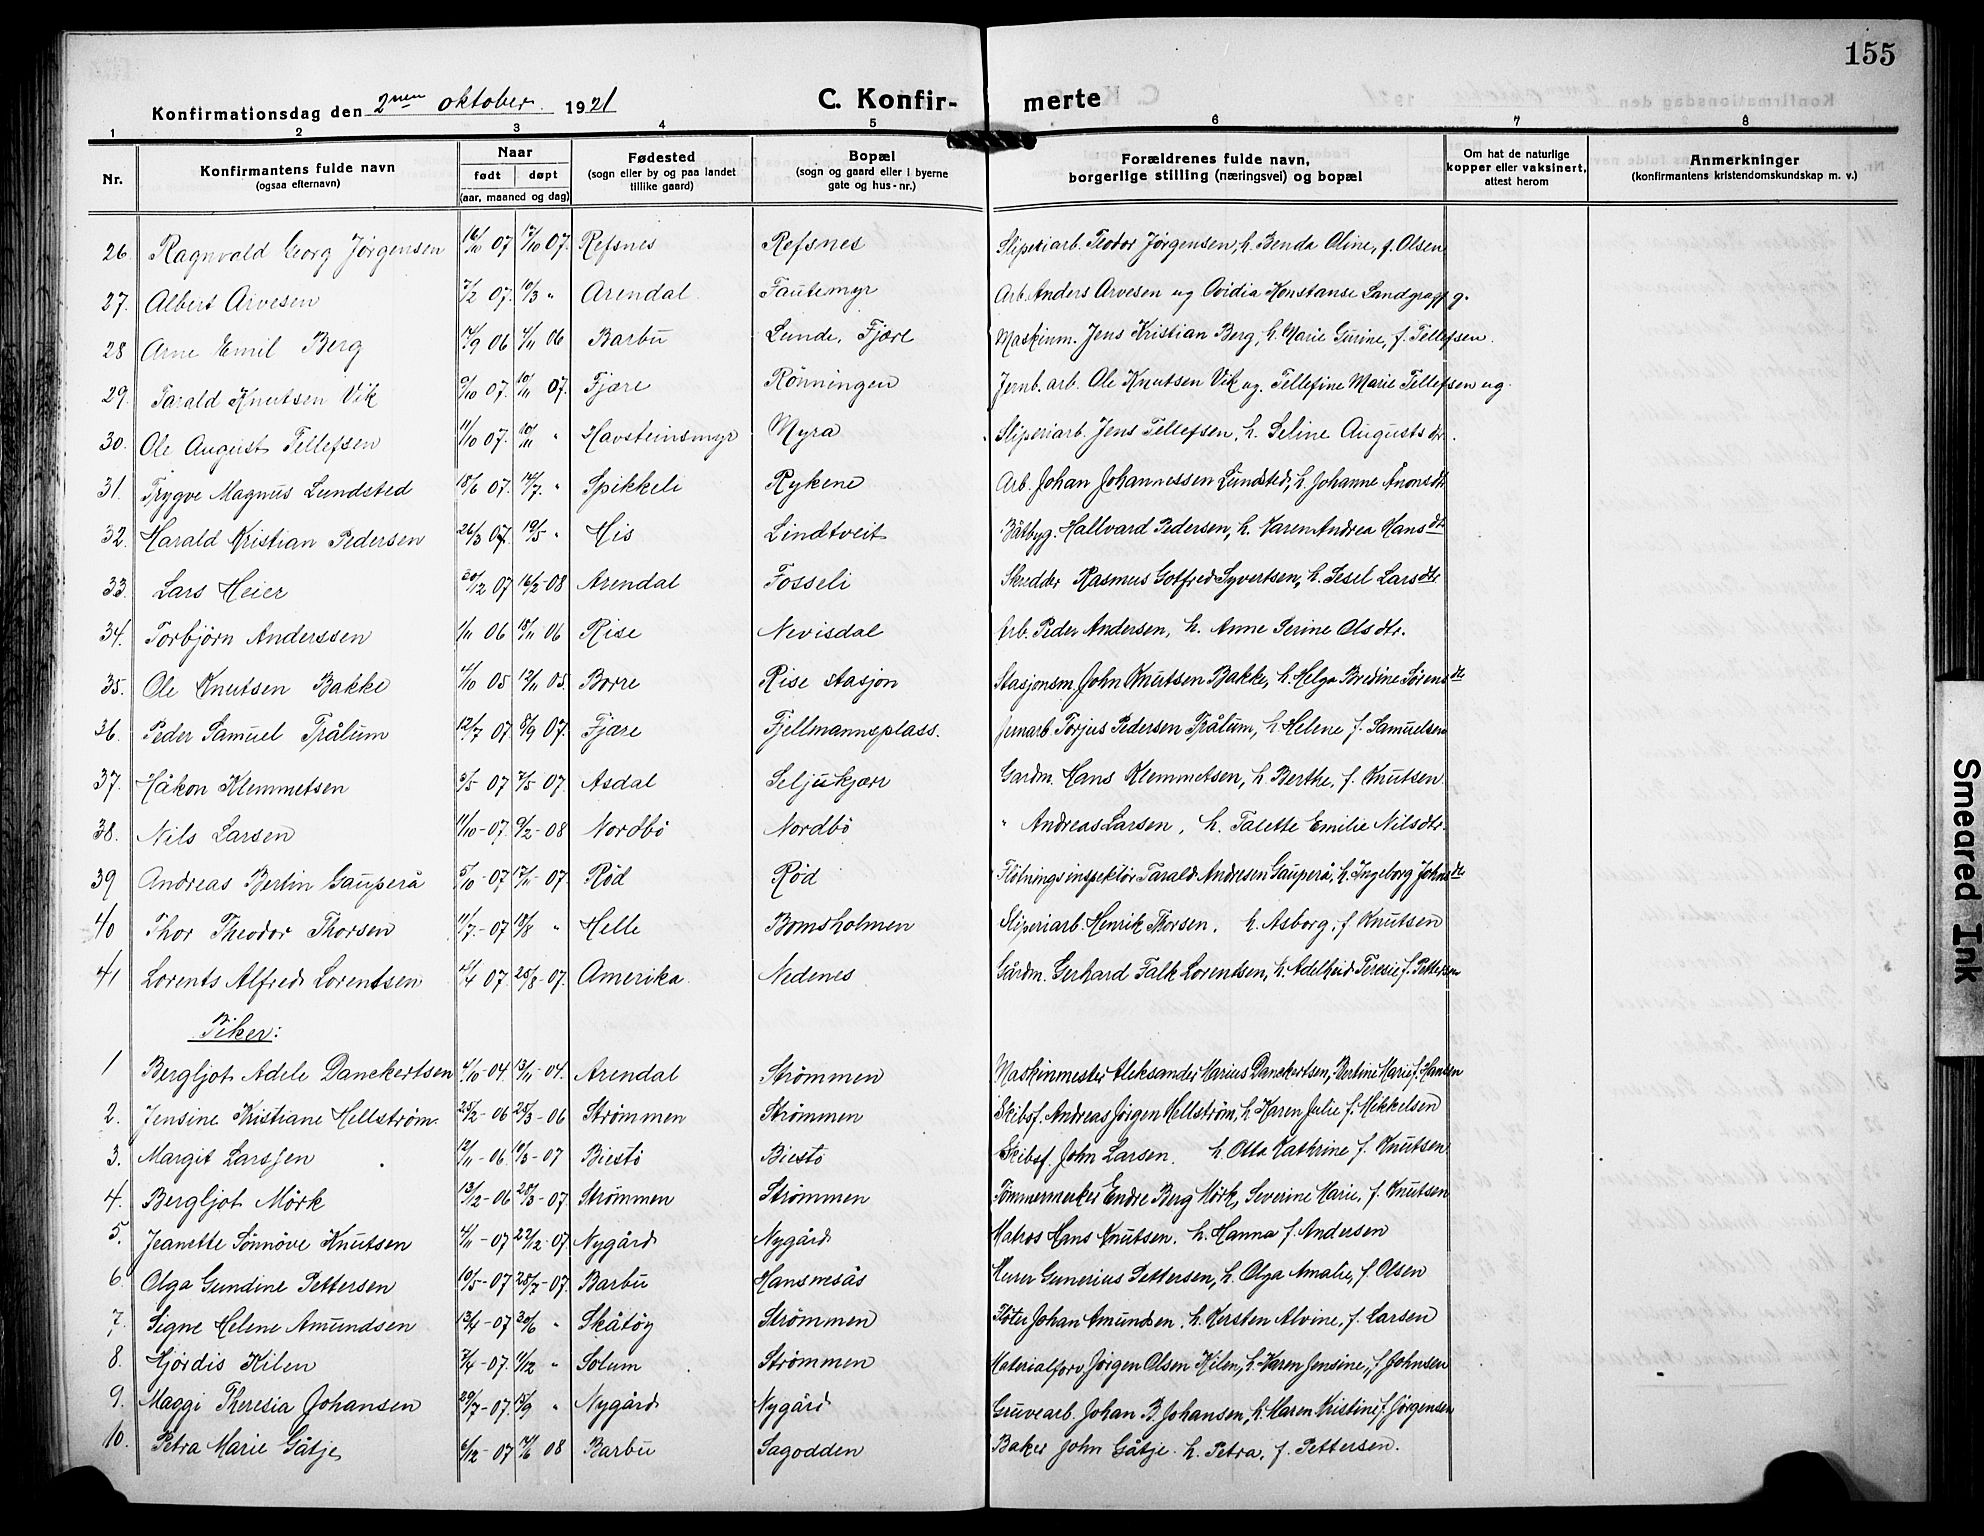 155
Konfirmationsdag den 2nen oktober 1921 C. Konfir- merte
1 2 3 4 5 6 7 8
Nr. Konfirmantens fulde navn (ogsaa efternavn) Naar født døpt (aar, maaned og dag) Fødested (sogn eller by og paa landet tillike gaard) Bopæl (sogn og gaard eller i byerne gate og hus-nr.) Forældrenes fulde navn, borgerlige stilling (næringsvei) og bopæl Om hat de naturlige kopper eller vaksinert, attest herom Anmerkninger (konfirmantens kristendomskundskap m. v.)
26. Ragnvald Georg Jørgensen 16/10 07 17/10 07. Refsnes Refsnes Sliperiarb. Teodor Jørgensen, h. Benda Oline, f. Olsen
27. Albert Arvesen 7/2 07. 10/3 " Arendal Fautemyr Arb. Anders Arvesen ug Ovidia Konstanse Landgraff g.
28 Arne Emil Berg 17/9 06 4/11 06 Barbu Lunde, Fjære Maskinm. Jens Kristian Berg, h. Marie Gurine, f. Tellefsen.
29. Tarald Knutsen Vik 9/10 07. 10/11 07. Fjære Rønningen Jernb. arb. Ole Knutsen Vik ug. Tellefine Marie Tellefsen ug.
30. Ole August Tellefsen 11/10 07. 10/11 " Havsteinsmyr Myra Sliperiarb. Jens Tellefsen, h. Seline Augusts dtr.
31. Trygve Magnus Lundsted 18/6 07. 14/7. " Spikkeli Rykene Arb. Johan Johannessen Lundsted, h. Johanne Anonsdtr
32. Harald Kristian Pedersen 26/3 07. 19/5 " His Lindtveit Båtbyg. Hallvard Pedersen, h. Karen Andrea Hansdtr
33. Lars Heier 30/12 07 16/2-08 Arendal Fosseli Skredder Rasmus Gotfred Syvertsen, h. Sesel Larsdtr
34. Torbjørn Anderssen 1/11 06 18/11 06 Rise Nevisdal Arb. Peder Andersen, h. Anne Serine Olsdtr.
35. Ole Knutsen Bakke 4/10 05 12/11 05. Borre Rise stasjon Stasjonsm. John Knutsen Bakke, h. Helga Bredine Sørensdtr
36. Peder Samuel Trålum 12/7 07. 8/9 07. Fjære Fjellmannsplass. Jernarb. Torjus Pedersen Trålum, h. Helene f. Samuelsen
37. Håkon Klemmetsen 3/5 07 7/5 07. Asdal Seljukjær Gardm. Hans Klemmetsen, h. Berthe, f. Knutsen
38. Nils Larsen 11/10-07. 9/2-08 Nordbö Nordbö " Andreas Larsen, h. Talette Emilie Nilsdtr.
39 Andreas Bertin Gauperå 5/10-07 17/11-07. Rød Rød Flötningsinspektör Tarald Andresen Gauperå, h. Ingeborg Johnsdtr
40 Thor Theodor Thorsen 11/7.-07 18/8 " Helle Bomsholmen Sliperiarb. Henrik Thorsen. h. Asborg, f Knutsen
41 Lorents Alfred Lorentsen 4/4 07. 25/8-07. Amerika Nedenes Gårdm. Gerhard Falk Lorentsen, h. Adelheid Teresie f. Pettersen
Piker:
1 Bergljot Adele Danckertsen 4/10-04. 13/11-04. Arendal Strømmen Maskinmester Aleksander Marius Danckertsen, Bertine Marie f. Hansen
2. Jensine Kristiane Hellström. 25/2-06 25/3-06 Strømmen Strømmen Skibsf. Andreas Jørgen Hellström, h Karen Julie f. Mikkelsen
3. Margit Larssen 12/11-06. 10/3-07 Biestö Biestö Skibsf. John Larsen. h. Otto Kathrine f. Knutsen
4. Bergljot Mörk 13/12-06 28/3-07. Strømmen Strømmen Tømmermerker Endre Berg Mörk, Severine Marie, f. Knutsen
5. Jeanette Sönnöve Knutsen 4/11-07 22/12-07 Nygård Nygård Matros Hans Knutsen. h. Hanna f. Andersen
6. Olga Gundine Pettersen 10/5-07 25/7-07. Barbu Hansmesås Murer Gunerius Pettersen, h. Olga Amalie, f. Olsen
7. Signe Helene Amundsen 13/4-07 30/6 " Skåtøy Strømmen Fløter Johan Amundsen. h. Kersten Alvine, f. Larsen
8. Hjördis Kilen 7/4-07. 1/12 " Solum Strømmen Materialforv Jørgen Olsen Kilen, h. Karen Jensine, f. Johnsen
9. Maggi Theresia Johansen 29/7-07. 15/9 " Nygård Nygård Gruvearb. Johan B. Johansen, h. Maren Kristine f. Jörgensen
10. Petra Marie Gåtje 6/12-07 7/6 08 Barbu Sagodden Baker John Gåtje. h. Petra, f. Pettersen.
Smeared Ink